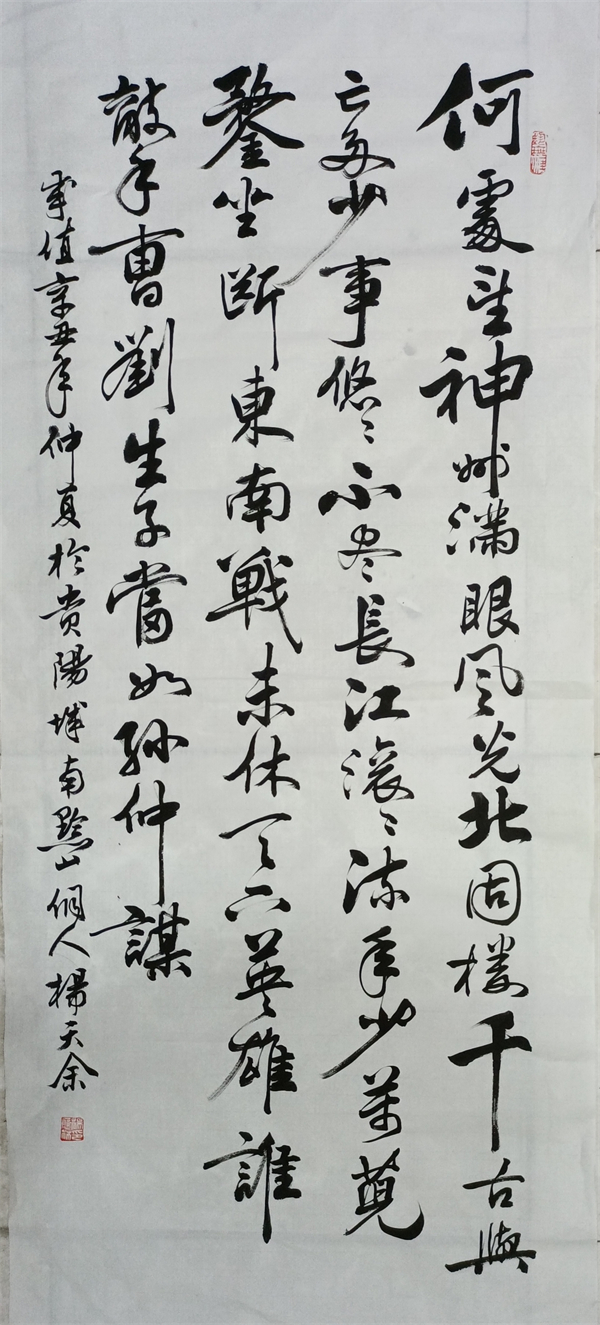 何處望神州滿眼風光北固楼千古興
亡多少事悠〻不尽長江滾〻流年少萬兜
鍪坐斷東南戰未休天下英雄誰
敵手曹劉生子當如孫仲謀
歲值辛丑年仲夏於貴陽城南黔山佣人楊天余